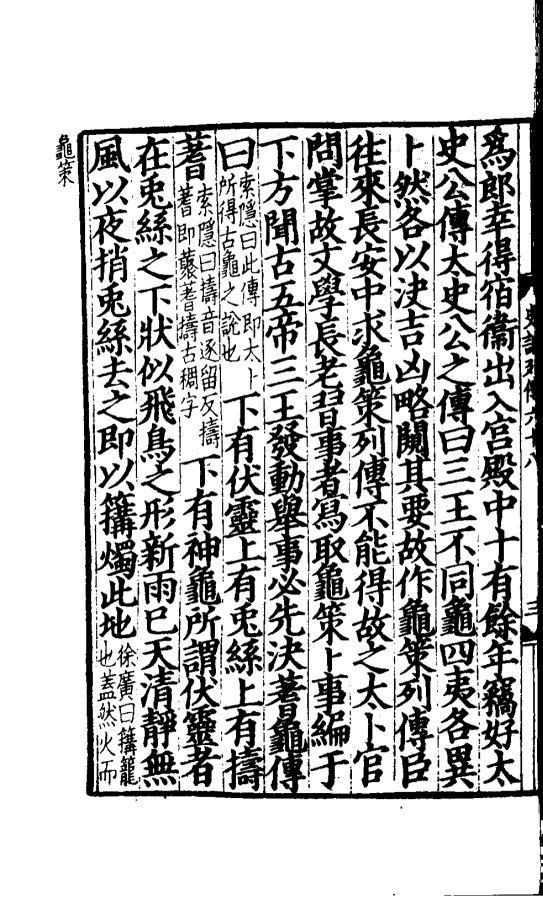 爲郎幸得宿衞出入宮殿中十有餘年竊好太
史公傳太史公之傳曰三王不同龜四夷各異
卜然各以決吉凶略闚其要故作龜策列傳臣
往來長安中求龜策列傳不能得故之太卜官
問掌故文學長老習事者寫取龜策卜事編于
下方聞古五帝三王發動舉事必先決蓍龜傳
曰索隱曰此傳即太卜所得古龜之說也下有伏靈上有兎絲上有擣
蓍索隱曰擣音逐留反擣蓍即藂蓍擣古稠字下有神龜所謂伏靈者
在兎絲之下狀似飛鳥之形新雨已天清靜無
風以夜捎兎絲去之即以篝燭此地徐廣曰篝籠也蓋然火而
龜策